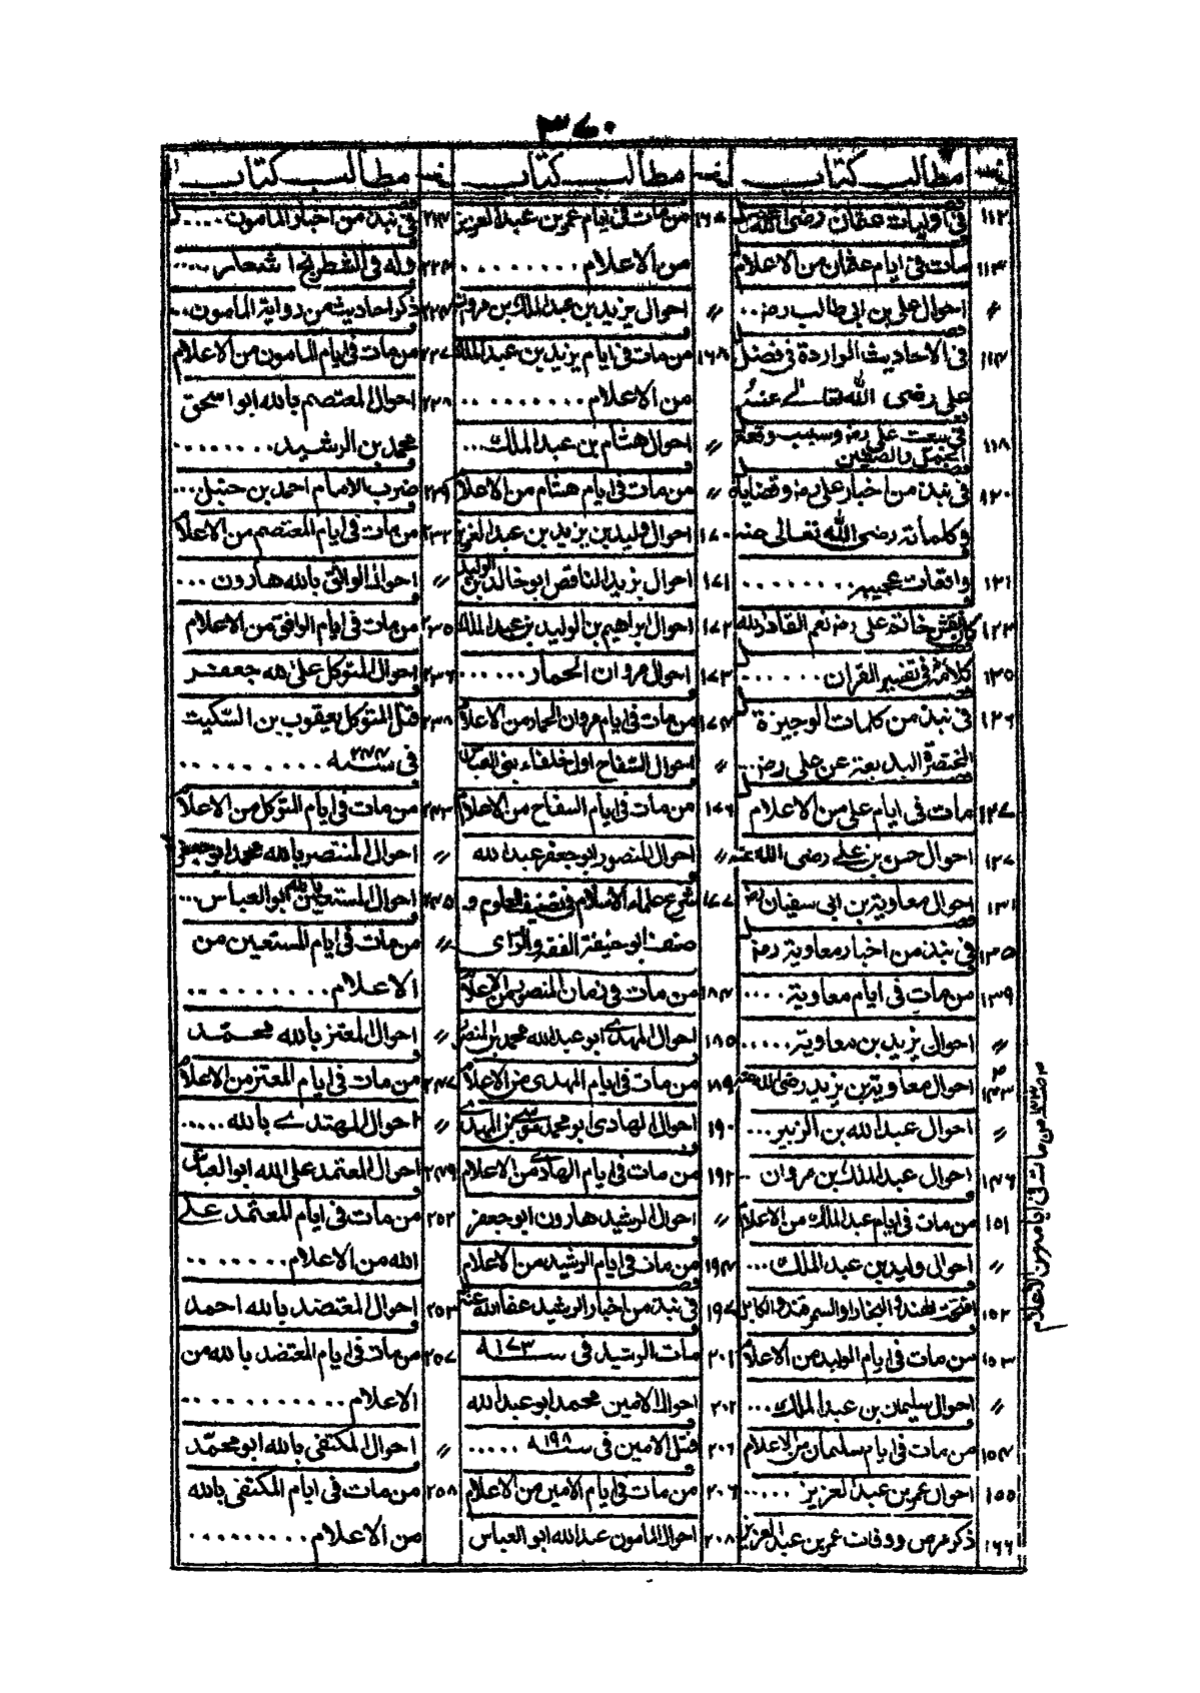 ٣٧٠
صفحه مطالب كتاب
١١٢ في اوليات عثمان رضي الله عنه
١١٣ مات في ايام عثمان من الاعلام
〃 احوال علي بن ابي طالب رضـ ...
١١٤ في الاحاديث الواردة في فضل
علي رضي الله تعالى عنه
١١٨ في بيعت علي رضـ وسبب وقعة
الجمل والصفين
١٢٠ في نبذ من اخبار علي رضـ وقضاياه
وكلماته رضي الله تعالى عنه
١٢١ واقعات عجيبه ........
١٢٣ كان نقش خاتم علي رضـ نعم القادر لله
١٢٥ كلامه في تفسير القران ......
١٢٦ في نبذ من كلمات الوجيزة
المختصرة البديعة عن علي رضـ ...
١٢٧ مات في ايام علي من الاعلام
١٢٧ احوال حسن بن علي رضي الله عنه
١٣١ احوال معاوية بن ابي سفيان رضـ
١٣٥ في نبذ من اخبار معاوية رضـ
١٣٩ من مات في ايام معاوية ....
〃 احوال يزيد بن معاوية ......
١٤٣ احوال معاوية بن يزيد رضي الله عنه
〃 احوال عبد الله بن الزبير ...
١٤٦ احوال عبد الملك بن مروان ..
١٥١ من مات في ايام عبد الملك من الاعلام
〃 احوال وليد بن عبد الملك ...
١٥٢ افتتحت الهند والبخارا والسمرقند والكابل
١٥٣ من مات في ايام الوليد من الاعلام
〃 احوال سليمان بن عبد الملك ...
١٥٤ من مات في ايام سليمان من الاعلام
١٥٥ احوال عمر بن عبد العزيز .....
١٦٦ ذكر مرض ووفات عمر بن عبد العزيز
صفحه مطالب كتاب
١٦٨ من مات في ايام عمر بن عبد العزيز
من الاعلام ........
〃 احوال يزيد بن عبد الملك بن مروان
١٦٨ من مات في ايام يزيد بن عبد الملك
من الاعلام .........
〃 احوال هشام بن عبد الملك ...
〃 من مات في ايام هشام من الاعلام
١٧٠ احوال وليد بن يزيد بن عبد العزيز
١٧١ احوال يزيد الناقص ابو خالد بن الوليد
١٧٢ احوال ابراهيم بن الوليد بن عبد الملك
١٧٣ احوال مروان الحمار ......
١٧٤ من مات في ايام مروان الحمار من الاعلام
〃 احوال السفاح اول خلفاء بني العباس
١٧٦ من مات في ايام السفاح من الاعلام
〃 احوال المنصور ابو جعفر عبد الله
١٧٧ شرع علماء الاسلام في تصنيف العلوم و
صنف ابو حنيفة الفقه والراى
١٨٤ من مات في زمان المنصور من الاعلام
١٨٥ احوال المهدي ابو عبد الله محمد بن المنصور
١٨٩ من مات في ايام المهدى من الاعلام
١٩٠ احوال الهادى ابو محمد موسى بن المهدي
١٩٢ من مات في ايام الهادي من الاعلام
〃 احوال الرشيد هارون ابو جعفر
١٩٤ من مات في ايام الرشيد من الاعلام
١٩٧ في نبذ من اخبار الرشيد عفا الله عنه
٢٠١ مات الرشيد في سنة ١٧٣
٢٠٢ احوال الامين محمد ابو عبد الله
٢٠٦ قتل الامين في سنة ١٩٨ .....
٢٠٦ من مات في ايام الامين من الاعلام
٢٠٨ احوال المامون عبد الله ابو العباس
صفحه مطالب كتاب
٢١٧ في نبذ من اخبار المامون .....
٢٢٤ وله في الشطرنج اشعار .....
٢٢٤ ذكر احاديث من رواية المامون ...
٢٢٧ من مات في ايام المامون من الاعلام
٢٢٨ احوال المعتصم بالله ابو اسحق
محمد بن الرشيد ........
٢٢٩ ضرب الامام احمد بن حنبل ...
٢٣٢ من مات في ايام المعتصم من الاعلام
〃 احوال الواثق بالله هارون ...
٢٣٥ من مات في ايام الواثق من الاعلام
٢٣٦ احوال المتوكل على الله جعفر
٢٣٨ قتل المتوكل يعقوب بن السكيت
في سنة ٢٤٤ .........
٢٤٣ من مات في ايام المتوكل من الاعلام
〃 احوال المنتصر بالله محمد ابو جعفر
٢٤٥ احوال المستعين بالله ابو العباس ...
〃 من مات في ايام المستعين من
الاعلام .........
〃 احوال المعتز بالله محمد
٢٤٧ من مات في ايام المعتز من الاعلام
〃 احوال المهتدے بالله .....
٢٤٩ احوال المعتمد على الله ابو العباس
٢٥٢ من مات في ايام المعتمد على
الله من الاعلام .......
٢٥٣ احوال المعتضد بالله احمد
٢٥٧ من مات في ايام المعتضد بالله من
الاعلام ...........
〃 احوال المكتفي بالله ابو محمد
٢٥٨ من مات في ايام المكتفي بالله
من الاعلام .........